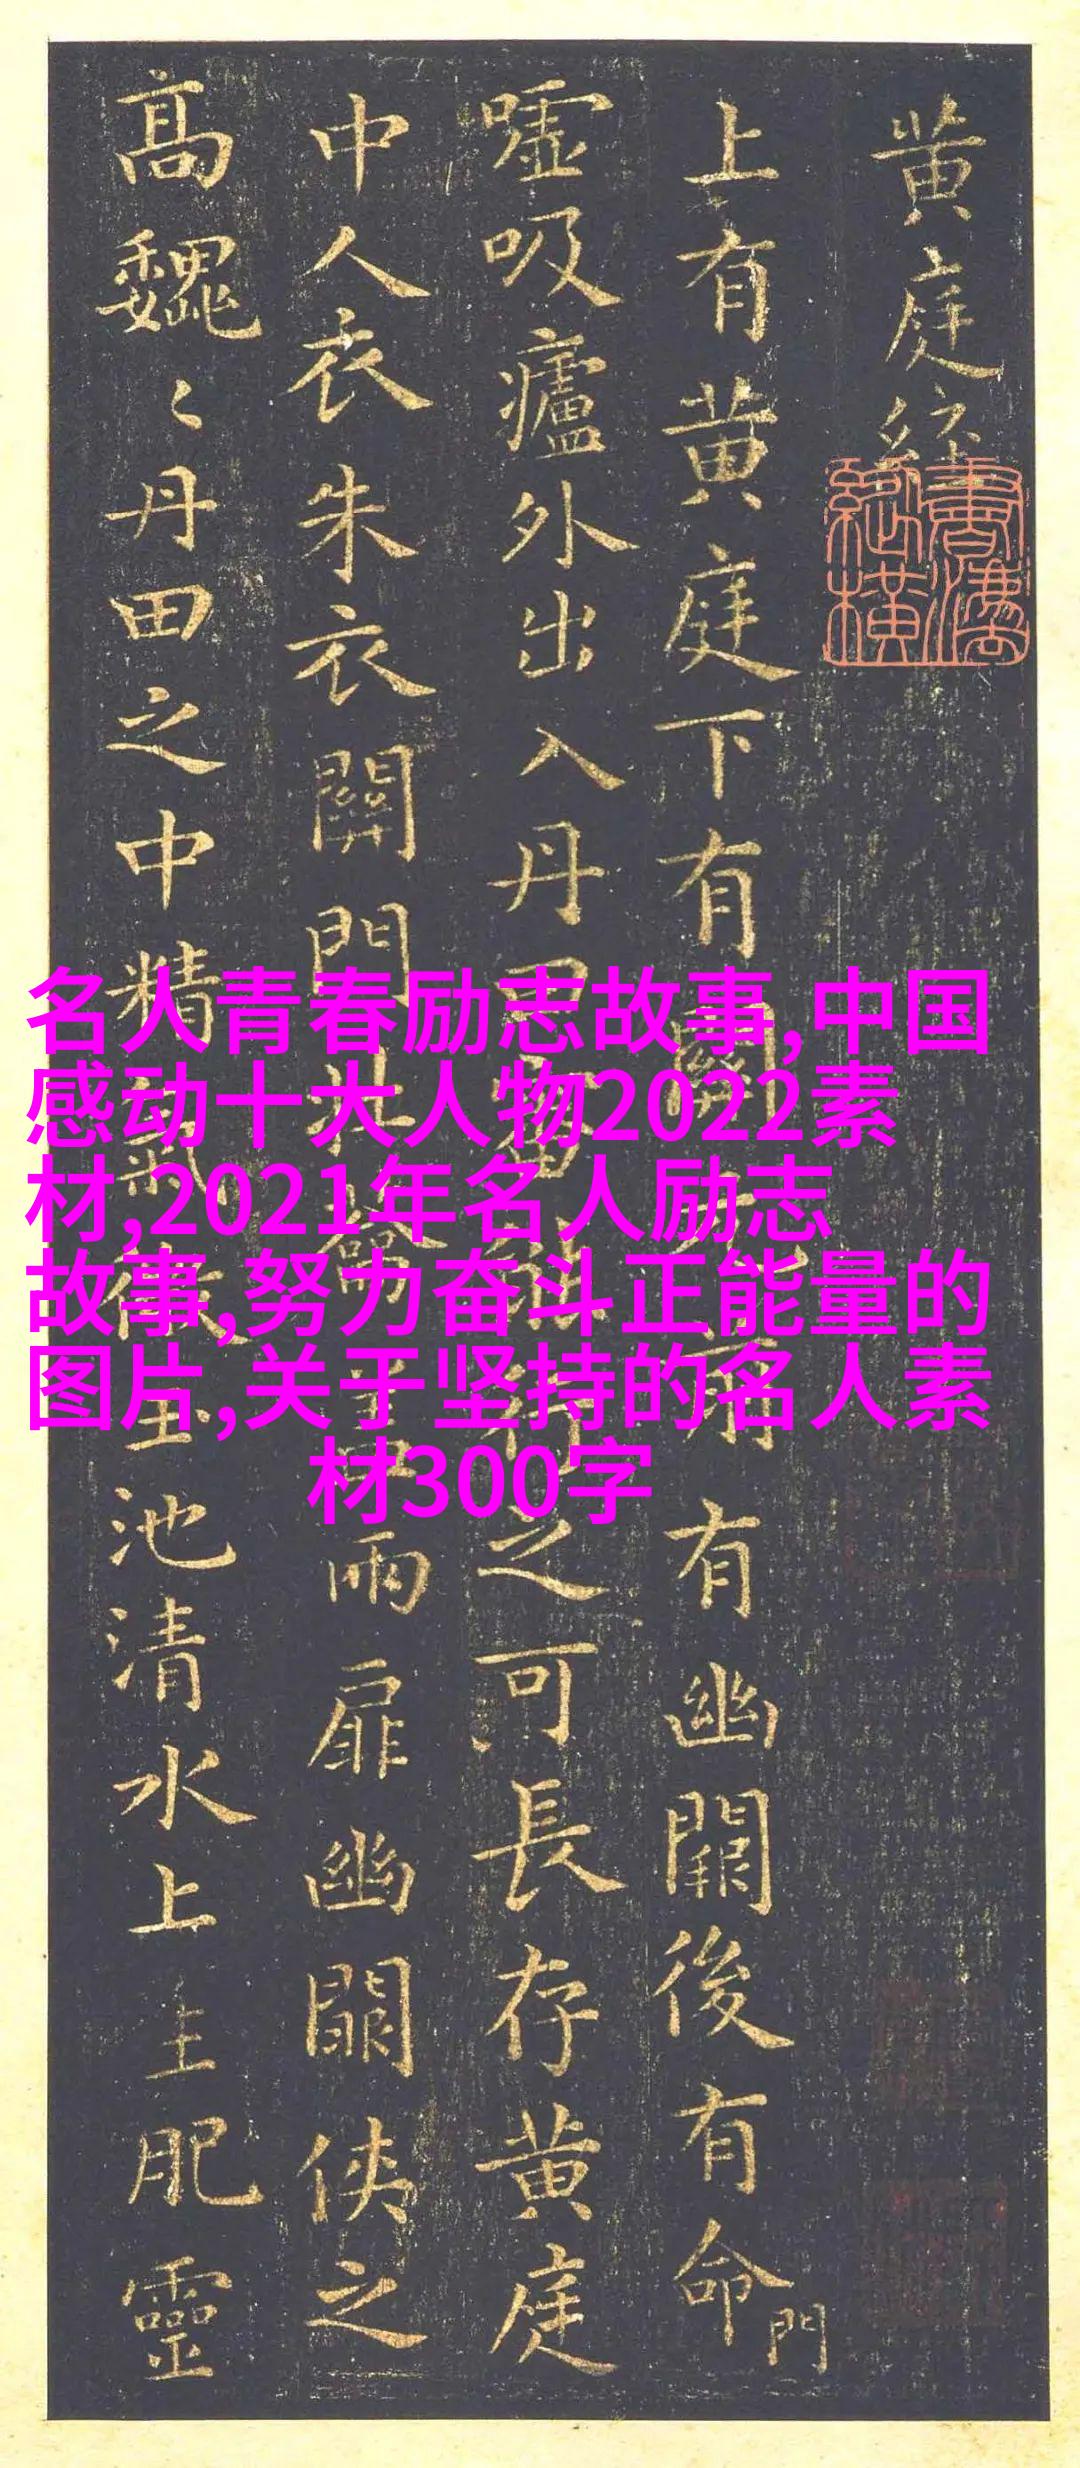 黄庭經
上有黄庭下有關元前有幽闕後有命門
嘘吸廬外出入丹田審能行之可長存黄庭
中人衣朱衣關門壯籥蓋兩扉幽闕俠之
高魏〻丹田之中精氣微玉池清水上生肥靈
書灋縱橫
名人青春励志故事,中国
感动十大人物2022素
材,2021年名人励志
故事,努力奋斗正能量的
图片,关于坚持的名人素
材300字